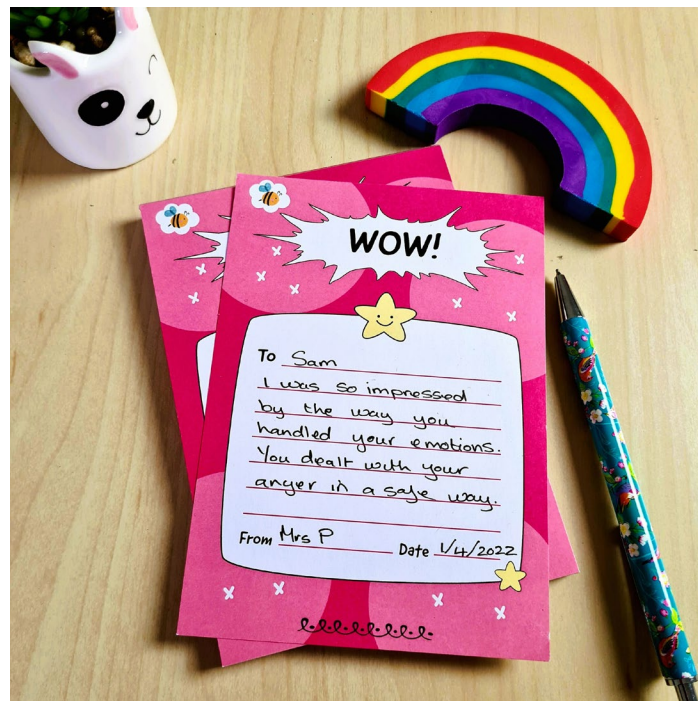 WOW!
To Sam
I was so impressed
by the way you
handled your emotions.
You dealt with your
anger in a safe way.
From Mrs P Date 1/4/2022